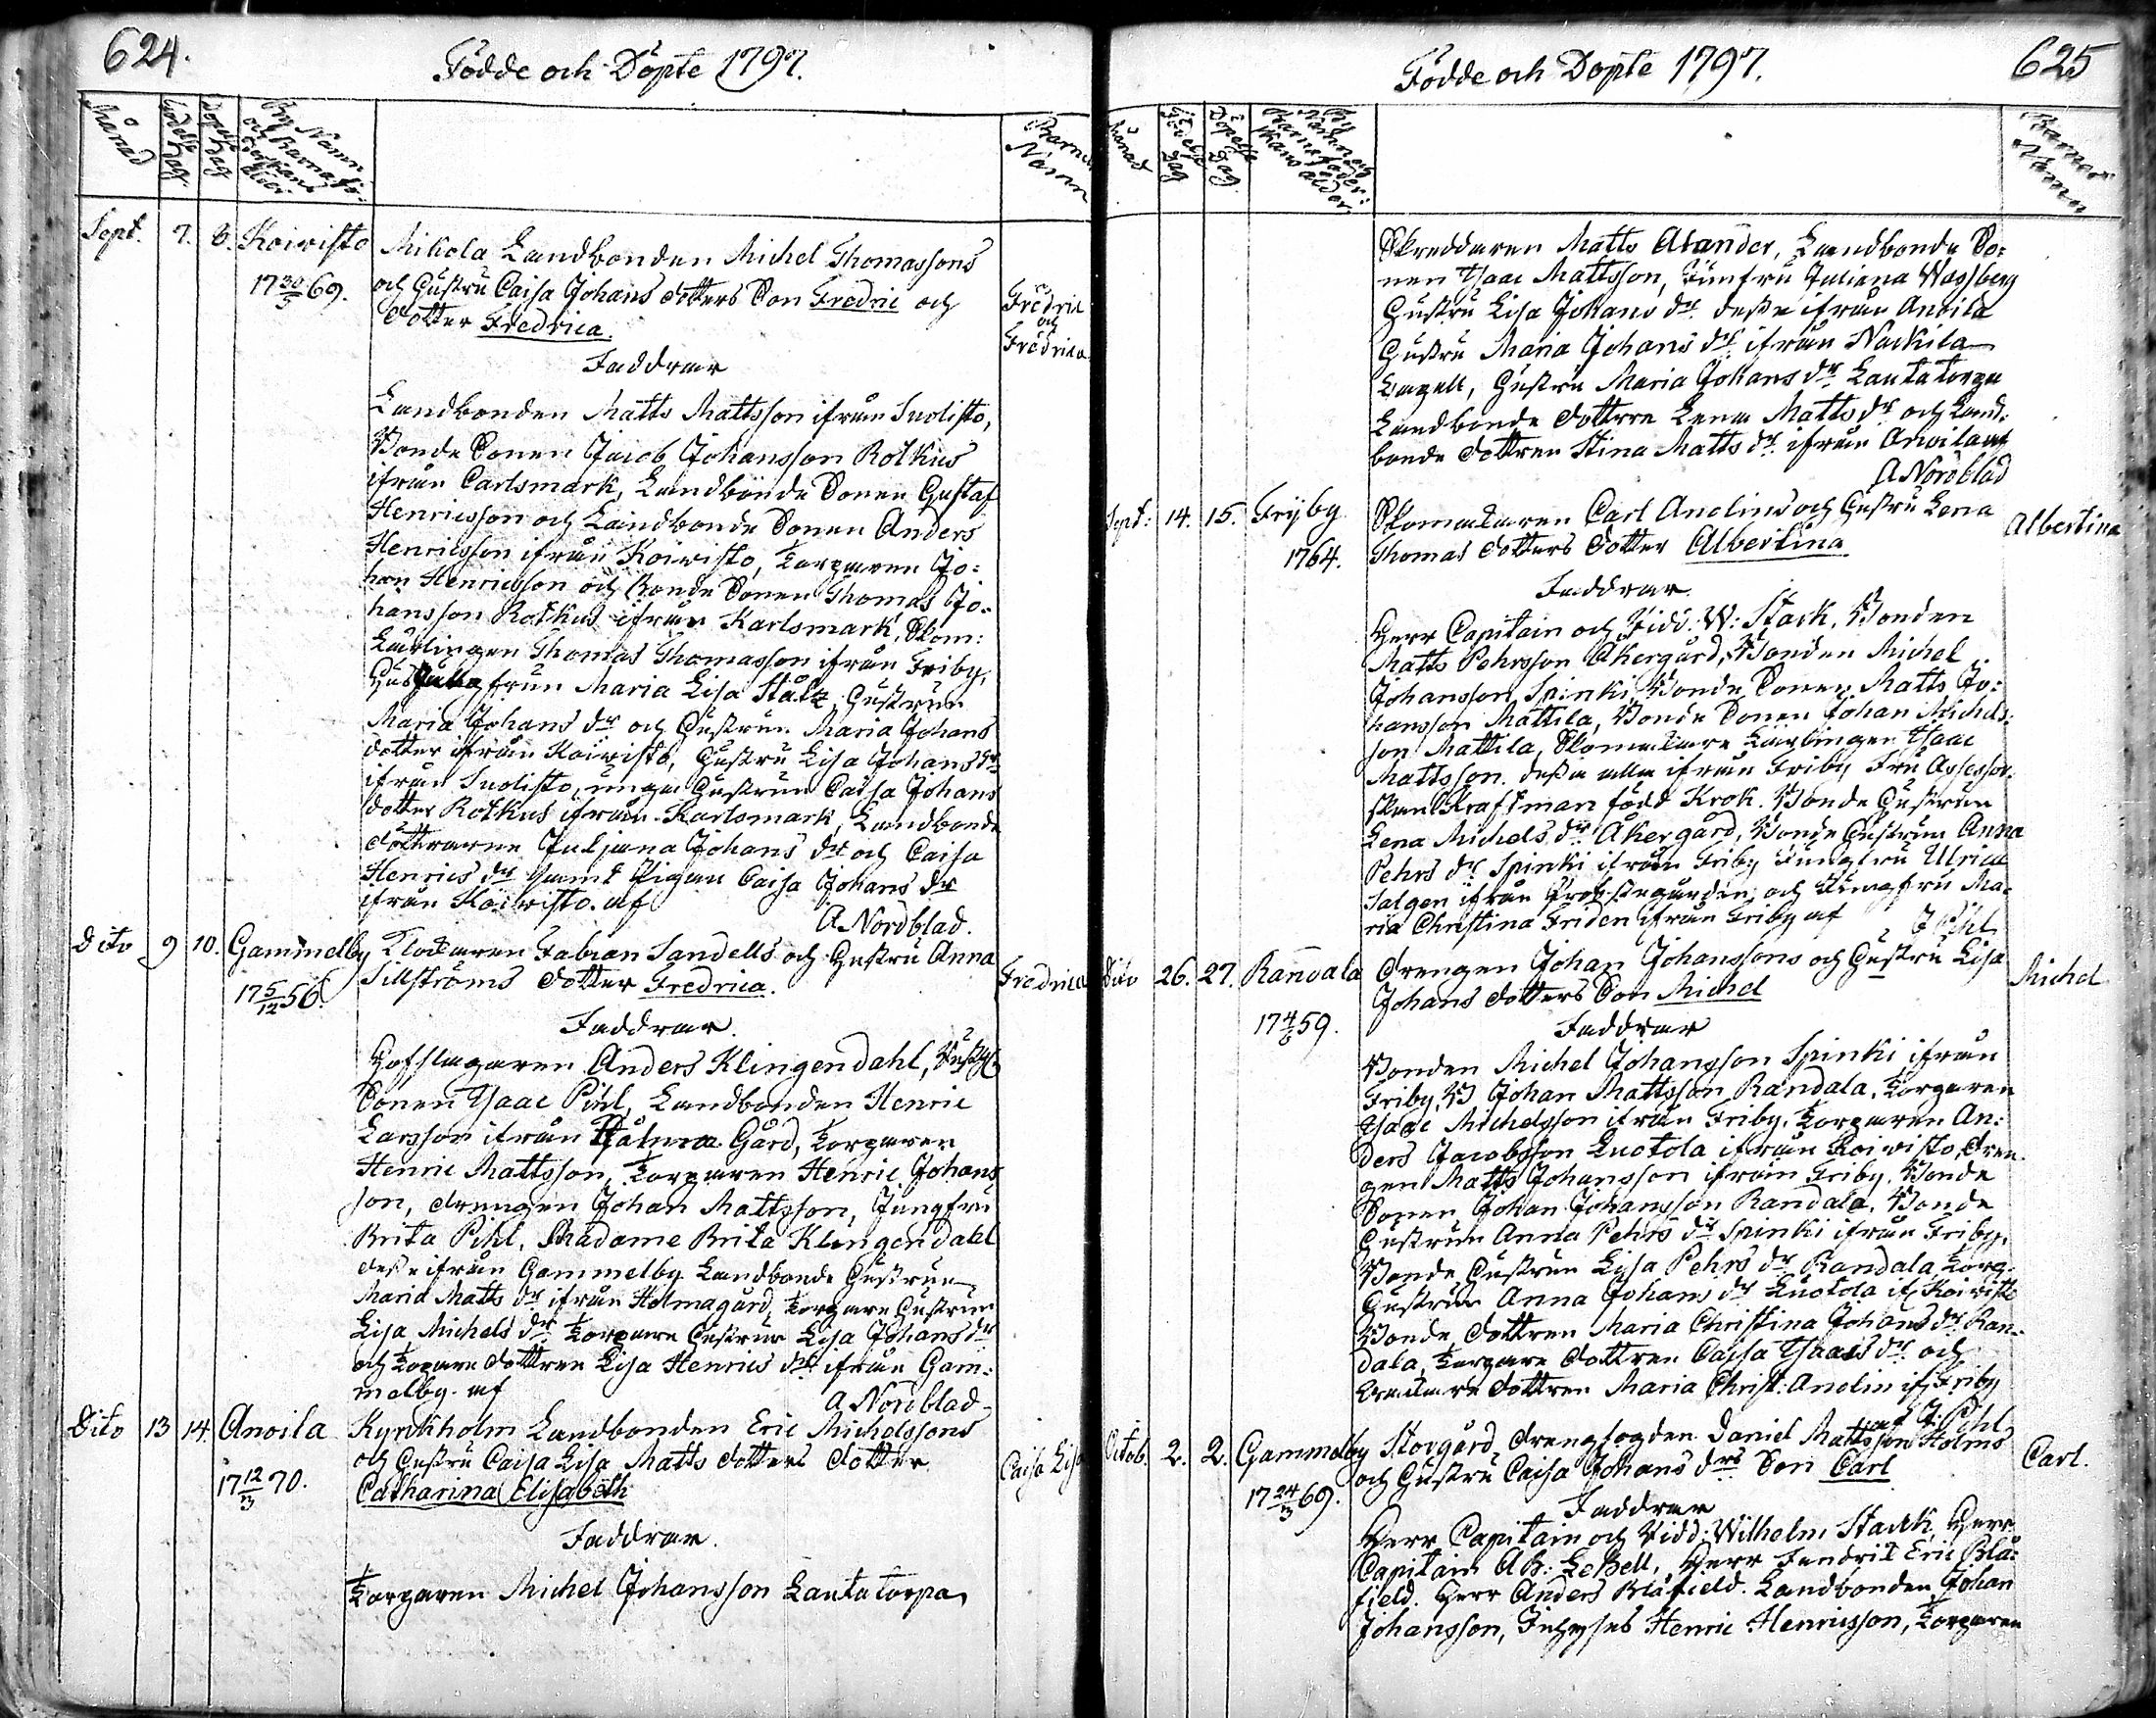 624.
Födde och Döpte 1797.
Månad
Födelse Dag
Döpelse Dag
By Namn och Barnafö-
Barnets Namn
Sept. 7. 8. Koivisto
17 30/5 69.
Mikola Landbonden Michel Thomassons
och Hustru Caisa Johans dotters Son Fredric och
dotter Fredrica.
Fredric
och
Fredrica
Faddrar
Landbonden Matts Mattsson ifrån Suolisto,
Bonde Sonen Jacob Johansson Rotkus
ifrån Carlsmark, Landbonde Sonen Gustaf
Henricsson och Landbonde Sonen Anders
Henricsson ifrån Koivisto, Torparen Jo-
han Henricsson och Bonde Sonen Thomas Jo-
hansson Rotkus ifrån Karlsmark, Skom:
Lärlingen Thomas Thomasson ifrån Friby,
Maria Lisa Hustrun
Maria Johans dr och Hustrun Maria Johans
dotter ifrån Koivisto, Hustru Lisa Johans dr
ifrån Suolisto, unga Hustrun Caisa Johans
dotter Rotkus ifrån Karlsmark, Landbonde
döttrarne Juljana Johans dr och Caisa
Henrics dr samt Pigan Caisa Johans dr
ifrån Koivisto. af
A Nordblad.
Dito 9 10. Gammelby
17 5/12 56.
Klockaren Fabian Sandells och Hustru Anna
Sillströms dotter Fredrica.
Fredrica
Faddrar.
Hofslagaren Anders Klingendahl,
Sonen Isaac Pihl, Landbonden Henric
Larsson ifrån Gård, Torparen
Henric Mattsson, Torparen Henric Johans
son, drengen Johan Mattsson, Jungfru
Brita Pihl, Madame Brita Klingendahl
desse ifrån Gammelby Landbonde Hustrun
Maria Matts dr ifrån Holmagård, Torpare Hustrun
Lisa Michels dr. Torpare Hustrun Lisa Johans dr
och Torpare dottren Lisa Henrics dr ifrån Gam:
melby. af
A Nordblad
Dito 13 14. Anoila
17 12/3 70.
Kyrckholm Landbonden Eric Michelssons
och Hustru Caisa Lisa Matts dotters dotter
Catharina Elisabeth
Caisa Lisa
Faddrar.
Torparen Michel Johansson Lautatorpa
Födde och Döpte 1797.
625
Månad
Födelse Dag
Döpelse Dag
Barnets Namn
Skreddaren Matts Alander, Landbonde So:
nen Isaac Mattsson, Jumfru Juliana Wassberg
Hustru Lisa Johans dr. desse ifrån Anoila
Hustru Maria Johans dr. ifrån Nackila
Capell, Hustru Maria Johans dr Lautatorpa
Landbonde dottren Lena Matts dr och Land:
bonde dottren Stina Matts dr. ifrån Anoila af
A Nordblad
Sept: 14. 15. Fryby
1764.
Skomakaren Carl Anelins och Hustru Lena
Thomas dotters dotter Albertina
Albertina
Faddrar
Herr Capitain och Ridd: W: Stack, Bonden
Matts Pehrsson Åkergård, Bonden Michel
Johansson Spinki, Bonde Sonen Matts Jo:
hansson Mattila, Bonde Sonen Johan Michels:
son Mattila, Skomakare Lärlingen Isaac
Mattsson. dessa alla ifrån Friby Fru Assessor-
skan Kraftman född Krok. Bonde Hustrun
Lena Michels dr Åkergård, Bonde Hustrun Anna
Pehrs dr Spinki ifrån Friby Jungfru Ulrica
Salgen ifrån Probstegården, och Jungfru Ma-
ria Christina Friden ifrån Friby af J Pihl
Dito 26. 27. Randala
17 4/8 59.
drengen Johan Johanssons och Hustru Lisa
Johans dotters Son Michel
Michel
Faddrar
Bonden Michel Johansson Spinki ifrån
Friby, B Johan Mattsson Randala, Torparen
Isaac Michelsson ifrån Friby, Torparen An:
ders Jacobsson Luotola ifrån Koivisto, dren
gen Matts Johansson ifrån Friby. Bonde
Sonen Johan Johansson Randala, Bonde
Hustrun Anna Pehrs dr Spinki ifrån Friby,
Bonde Hustrun Lisa Pehrs dr Randala Torp-
Hustrun Anna Johans dr Luotola if. Koivisto
Bonde dottren Maria Christina Johans dr Ran-
dala, Torpare dottren Caisa Isaacs dr och
dottren Maria Christ: Anelin if. Friby
af J. Pihl
Octob. 2. 2. Gammelby
17 24/3 69.
Storgård, drengfogden Daniel Mattsson Holms
och Hustru Caisa Johans drs Son Carl
Carl.
Faddrar
Herr Capitain och Ridd: Wilhelm Stack, Herr
Capitain AB: LeBell, Herr Fendrik Eric Blå:
field. Herr Anders Blåfield. Landbonden Johan
Johansson, Henric Henricsson, Torparen